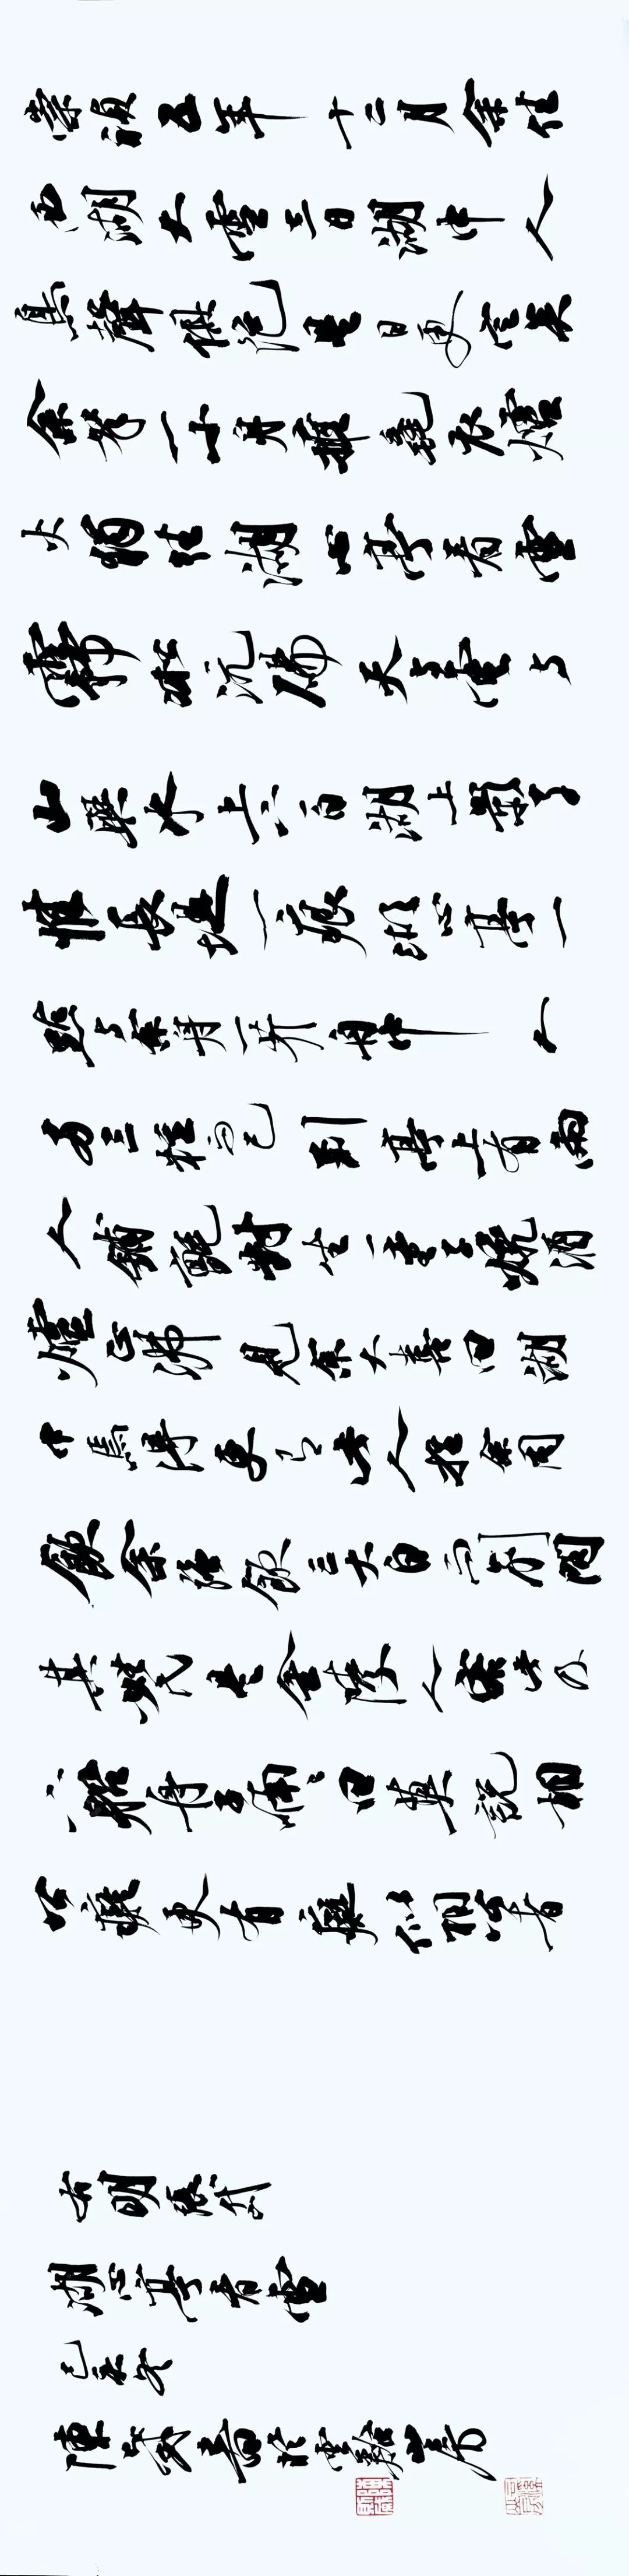 崇禎五年十二月余住
西湖大雪三日湖中人
鳥聲俱絕是日更定矣
余拏一小舟擁毳衣爐
火獨往湖心亭看雪
霧凇沆碭天与雲与
山與水上下一白湖上影子
惟長堤一痕湖心亭一
點与余舟一芥舟中人
两三粒而已到亭上有兩
人鋪氈對坐一童子燒酒
爐正沸見余大喜曰湖
中焉得更有此人拉余同
飲余強飲三大白而別問
其姓氏是金陵人客此及
下船舟子喃喃曰莫說相
公癡更有癡似相公者
右明張岱
湖心亭看雪
陳書於山房